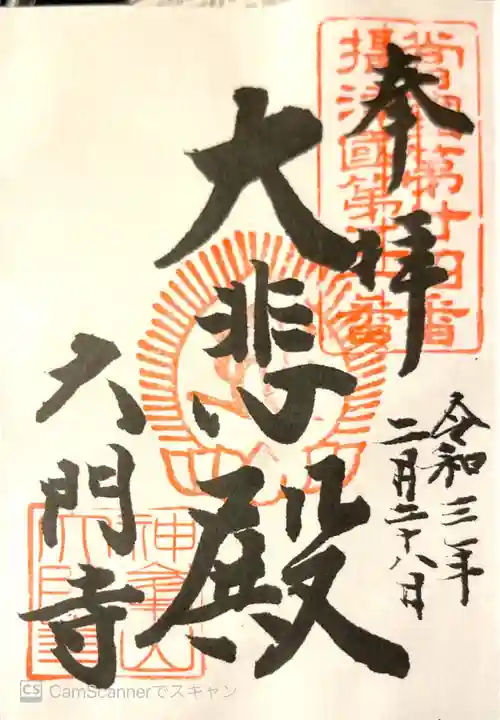 奉拝
令和三年
二月二十八日
大悲殿
大門寺
神峯山
大門寺
CS CamScannerでスキャン